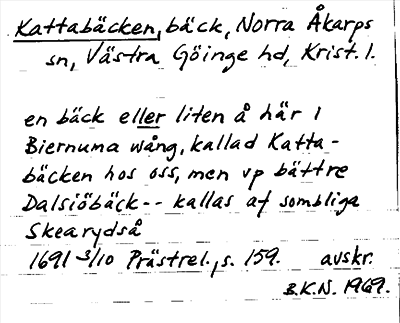 Kattabäcken, bäck, Norra Åkarps
sn, Västra Göinge hd, Krist. l.
en bäck eller liten å här i
Biernuma wång, kallad Katta-
bäcken hos oss, men vp bättre
Dalsiöbäck-- kallas af sombliga
Skearydså
1691 3/10 Prästrel., s. 159. avskr.
B.K.N. 1969.